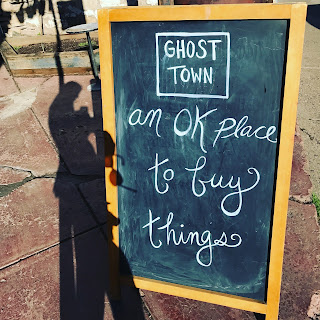 GHOST
TOWN
an OK place
to buy
things